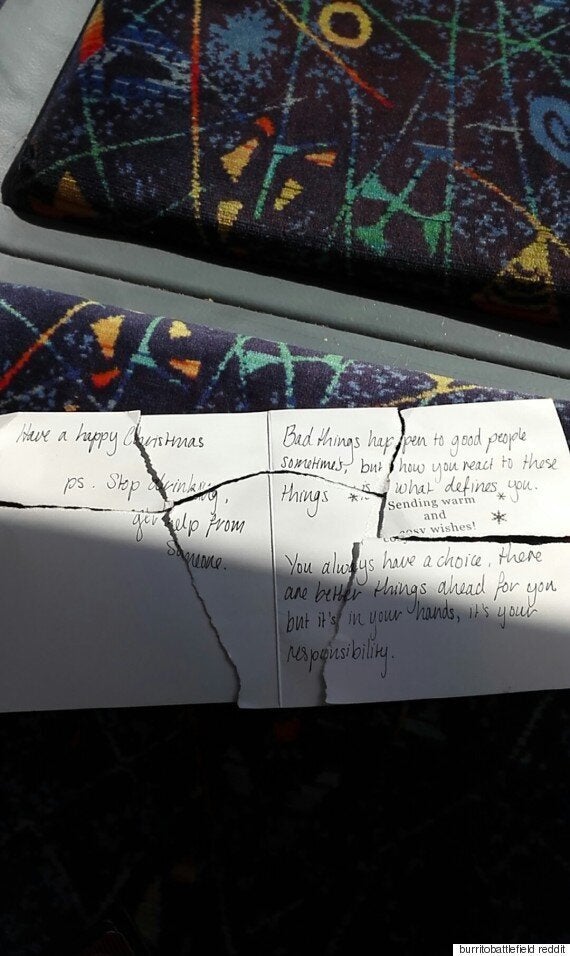 Have a happy Christmas
ps. Stop drinking,
get help from
Someone.
Bad things happen to good people
sometimes, but how you react to these
things is what defines you.
Sending warm
and
cosy wishes!
You always have a choice. there
are better things ahead for you
but it's in your hands, it's your
responsibility.
burritobattlefield reddit